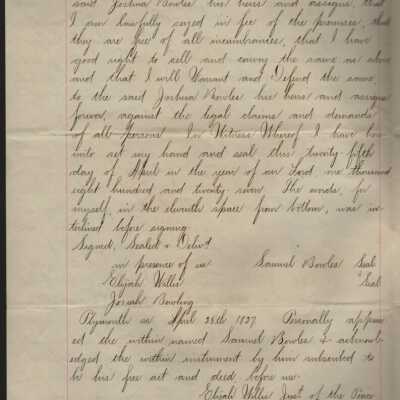 said Joshua Bowles his heirs and assigns, that
I am lawfully seized in fee of the premises, that
they are free of all incumbrances, that I have
good right to sell and convey the same as above
and that I will Warrant and Defend the same
to the said Joshua Bowles his heirs and assigns
forever, against the legal claims and demands
of all persons. In Witness Whereof I have here
unto set my hand and seal this twenty fifth
day of April in the year of our Lord, one thousand
eight hundred and twenty seven. The words, for
myself, in the eleventh space from bottom, was in-
terlined before signing
Signed, Sealed & Deliv'd
in presence of us Samuel Bowles Seal
Elijah Willis "Seal
Josiah Bowling
Plymouth ss April 28th 1827 Personally appear
ed the within named Samuel Bowles & acknowl-
edged the within instrument by him subscribed to
be his free act and deed before me
Elijah Willis Just of the Peace